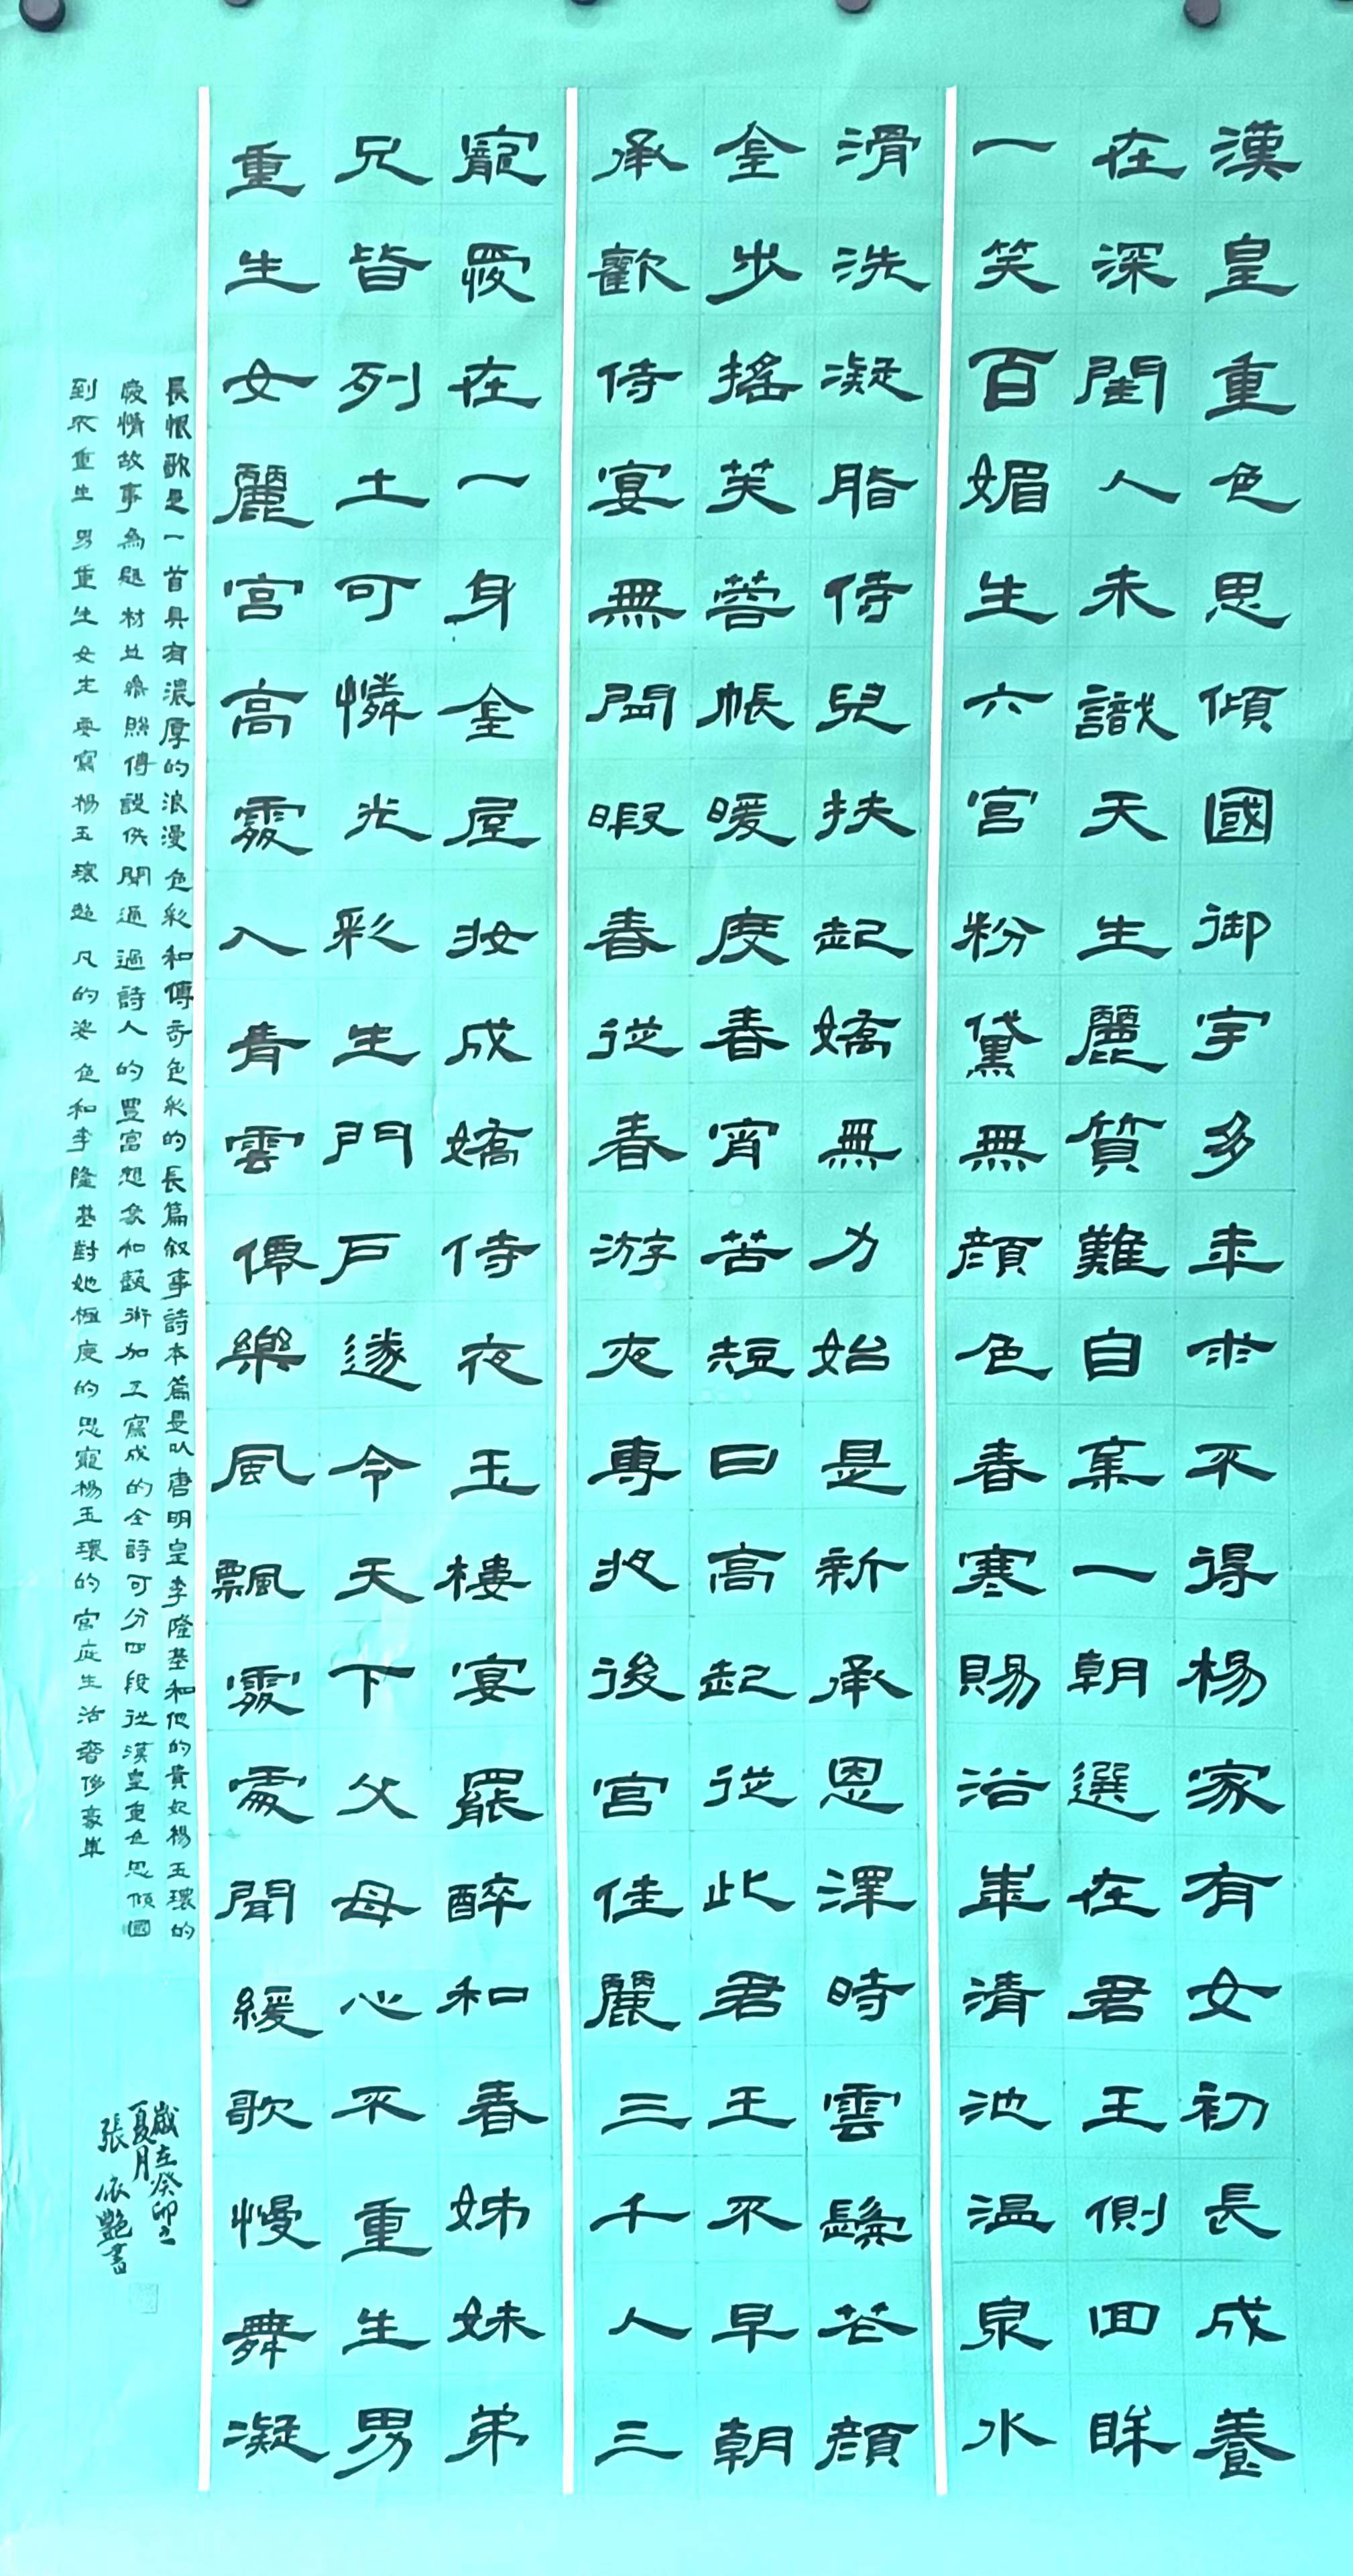 漢皇重色思傾國御宇多年求不得楊家有女初長成養
在深閨人未識天生麗質難自棄一朝選在君王側回眸
一笑百媚生六宮粉黛無顏色春寒賜浴華清池温泉水
滑洗凝脂侍兒扶起嬌無力始是新承恩澤時雲鬢花顏
金步搖芙蓉帳暖度春宵苦短日高起從此君王不早朝
承歡侍宴無閑暇春從春游夜專夜後宮佳麗三千人三
寵愛在一身金屋妝成嬌侍夜玉樓宴罷醉和春姊妹弟
兄皆列土可憐光彩生門戶遂令天下父母心不重生男
重生女麗宮高處入青雲僊樂風飄處處聞緩歌慢舞凝
長恨歌是一首具有濃厚的浪漫色彩和傳奇色彩的長篇叙事詩本篇是以唐明皇李隆基和他的貴妃楊玉環的
愛情故事為題材並參照傳說佚聞通過詩人的豐富想象和藝術加工寫成的全詩可分四段從漢皇重色思傾國
到不重生男重生女主要寫楊玉環超凡的姿色和李隆基對她極度的恩寵楊玉環的宮庭生活奢侈豪華
歲在癸卯之
夏月
張依艷書